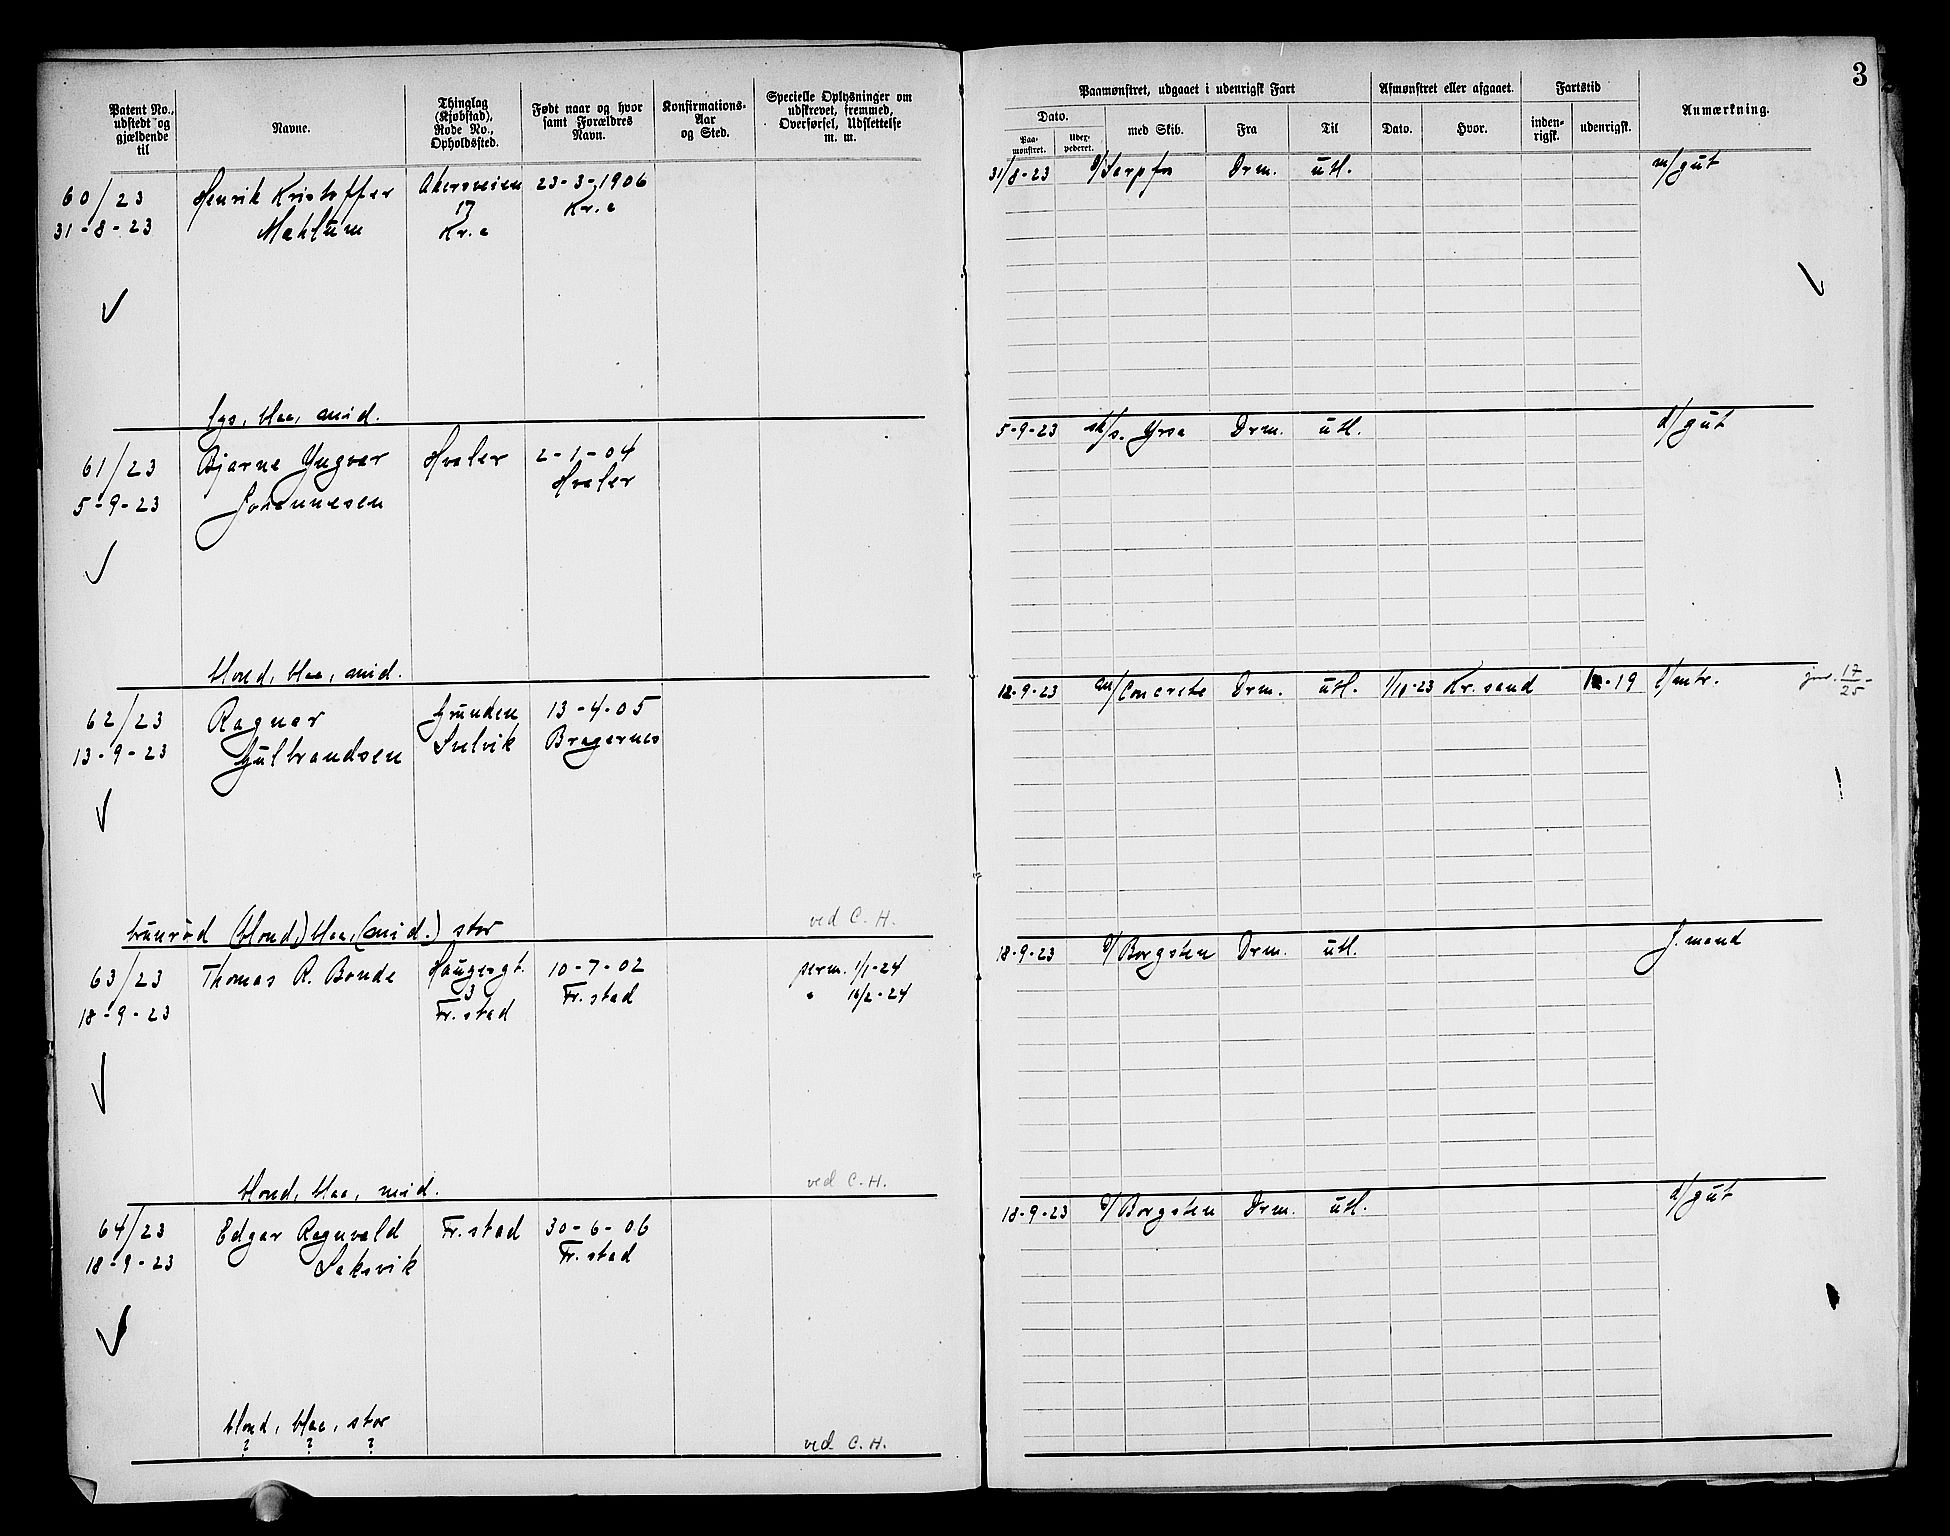 3
Patent No., udstedt og gjældende til
Navne.
Thinglag (Kjøbstad), Rode No., Opholdssted.
Født naar og hvor samt Forældres Navn.
Konfirmations-Aar og Sted.
Specielle Oplysninger om udskrevet, fremmed, Overførsel, Udslettelse m. m.
Paamønstret, udgaaet i udenrigsk Fart
Afmønstret eller afgaaet.
Fartstid
Anmærkning.
Dato.
Paa-mønstret.
med Skib.
Fra
Til
Dato.
Hvor.
inden-rigsk.
udenrigsk.
60/23
31-8-23
Henrik Kristoffer
Mehlum
Akersveien
17
Kr.a
23-3-1906
Kr.a
31/8-23
Drm.
utl.
m/gut
lys, blaa, mid.
61/23
5-9-23
Bjarne Yngvar
Johannesen
Hvaler
2-1-04
Hvaler
5-9-23
sk/s. Yrsa
Drm.
utl.
d/gut
blond, blaa, mid.
62/23
13-9-23
Ragnar
Gulbrandsen
Grunden
Svelvik
13-4-05
Bragernes
12-9-23
m/Concrete
Drm.
utl.
1/10-23
Kr.sand
-19
l/mtr.
17
25
brunrød (blond,) blaa, (mid.) stor
ved C. H.
63/23
18-9-23
Thomas R. Bonde
Haugergt.
3
Fr.stad
10-7-02
Fr.stad
perm. 1/1-24
" 16/2-24
18-9-23
s/Borgsten
Drm.
utl.
j.mand
blond, blaa, mid.
ved C. H.
64/23
18-9-23
Edgar Ragnvald
Saksvik
Fr.stad
30-6-06
Fr.stad
18-9-23
s/Borgsten
Drm.
utl.
d/gut
blond, blaa, stor
? ? ?
ved C. H.